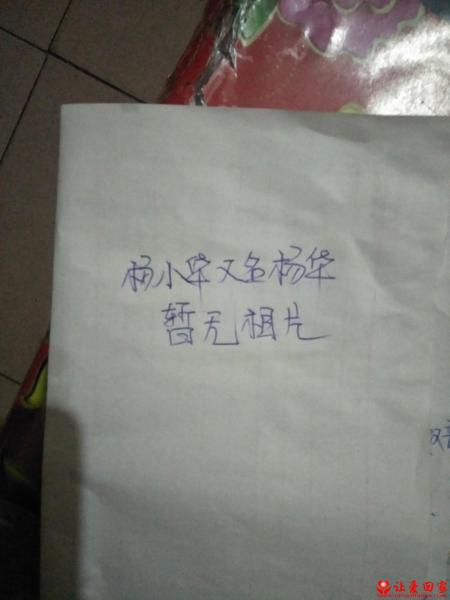 杨小华又名杨华
暂无相片
让爱回家